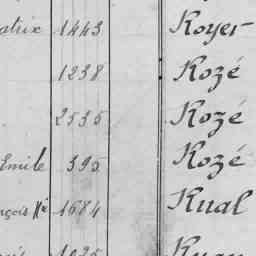 atrix 1443 Koyer
1238 Kozé
2535 Kozé
Emile 395 Kozé
nçois Xr 1684 Kual